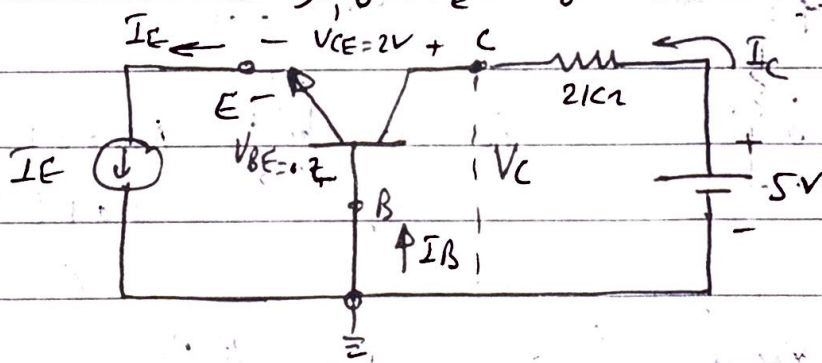 IE - VCE=2V + C IC
E - 2KΩ
IE VBE=0.7 VC + 5V
B -
IB